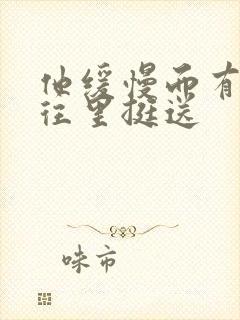 他缓慢而有
往里挺送
味市